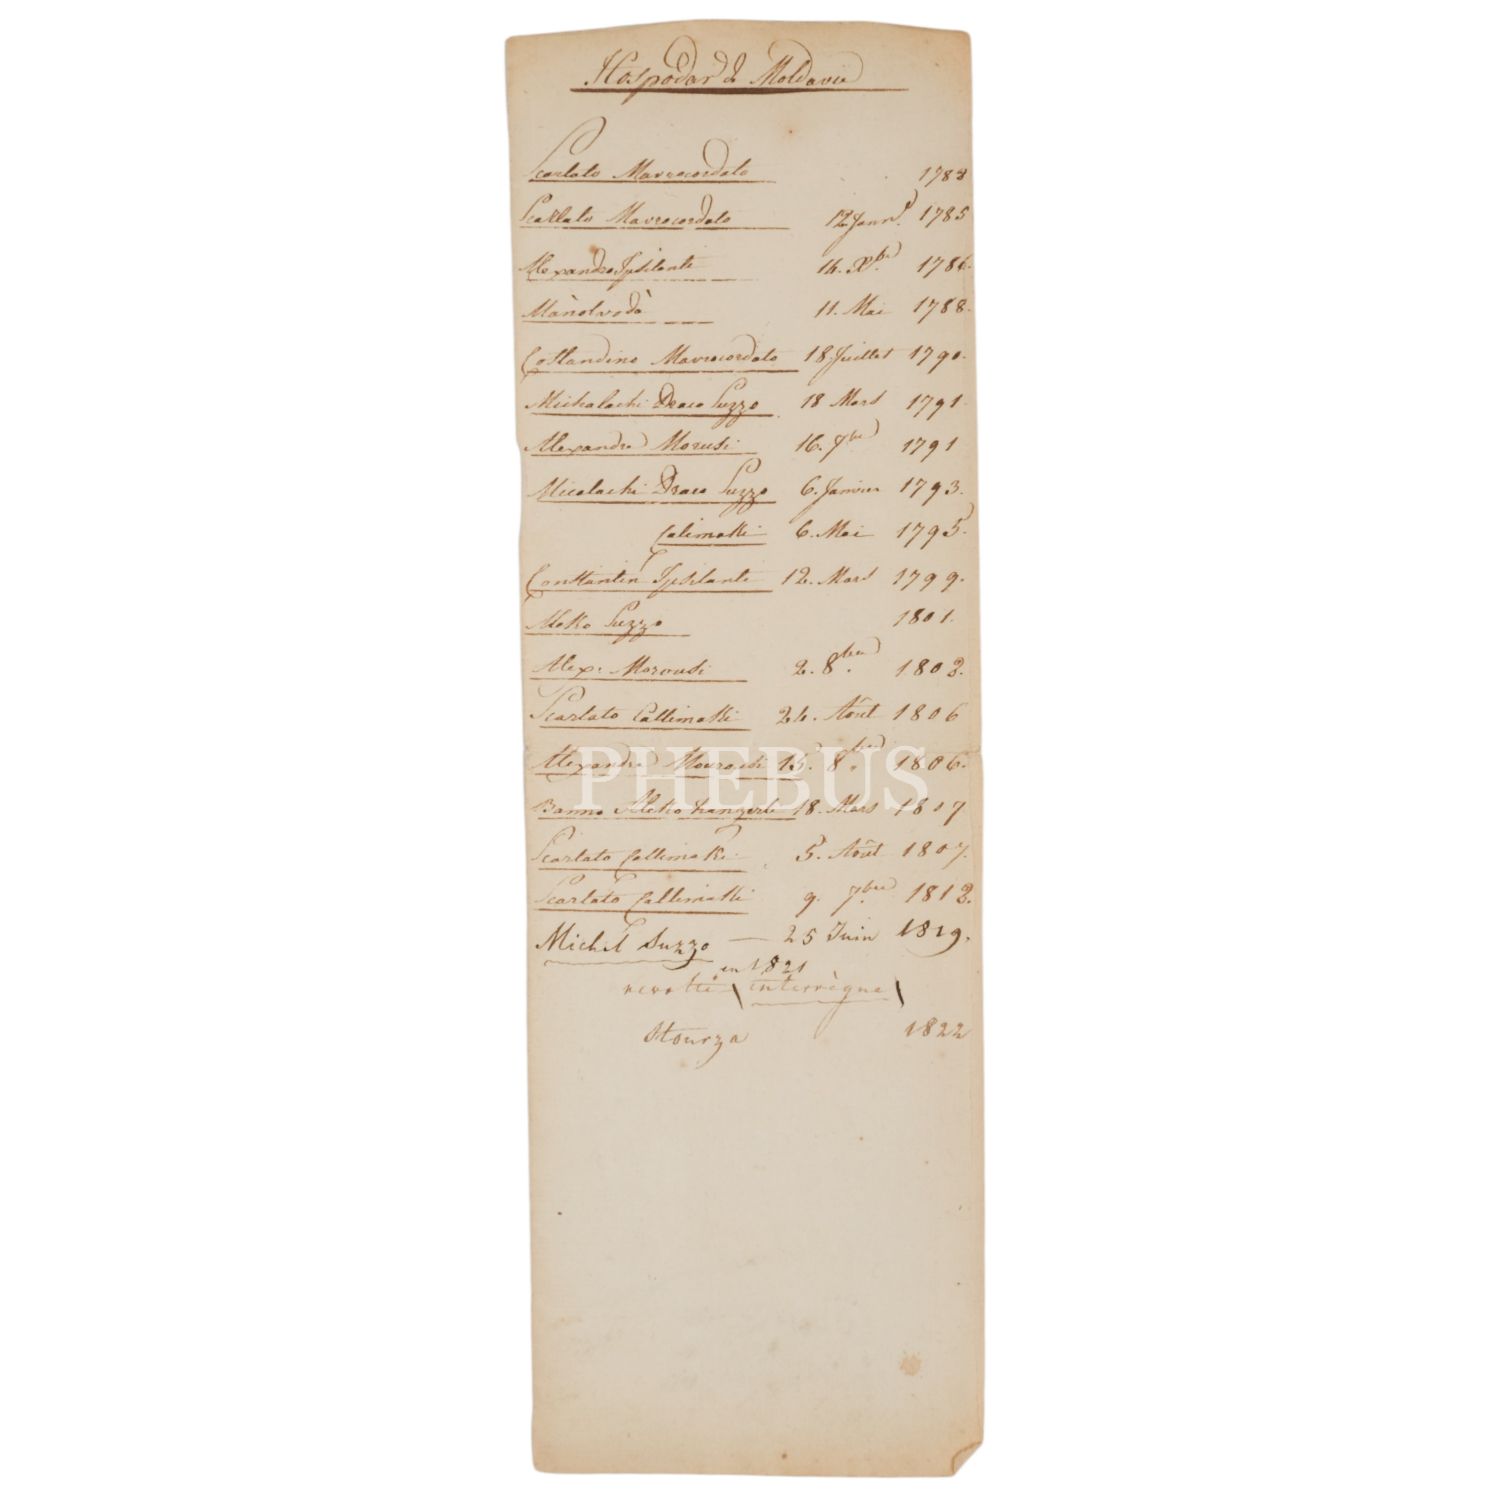 Hospodar de Moldavie
Scarlato Mavrocordato 1783
Scarlato Mavrocordato 12 Janvr. 1785
Alexandre Ipsilanti 14. Xbre 1786.
Mànolvodà 11. Mai 1788.
Costandino Mavrocordato 18 Juillet 1790.
Michalachi Draco Suzzo 18 Mars 1791.
Alexandre Morusi 16. 7bre 1791
Micalachi Draco Suzzo 6. Janvier 1793.
Calimakki 6. Mai 1795.
Constantin Ipsilanti 12. Mars 1799.
Aleko Suzzo 1801.
Alex: Morousi 2. 8bre. 1802.
Scarlato Callimakki 24. Août 1806
Alexandre Mourousi 15. 8bre. 1806.
Banno Aleko hangerli 18. Mars 1807
Scarlato Callimaki 5. Août 1807.
Scarlato Callimakki 9. 7bre 1812.
Michel Suzzo — 25 Juin 1819.
en 1821
revolte ( interrègne )
Stourza 1822
PHEBUS